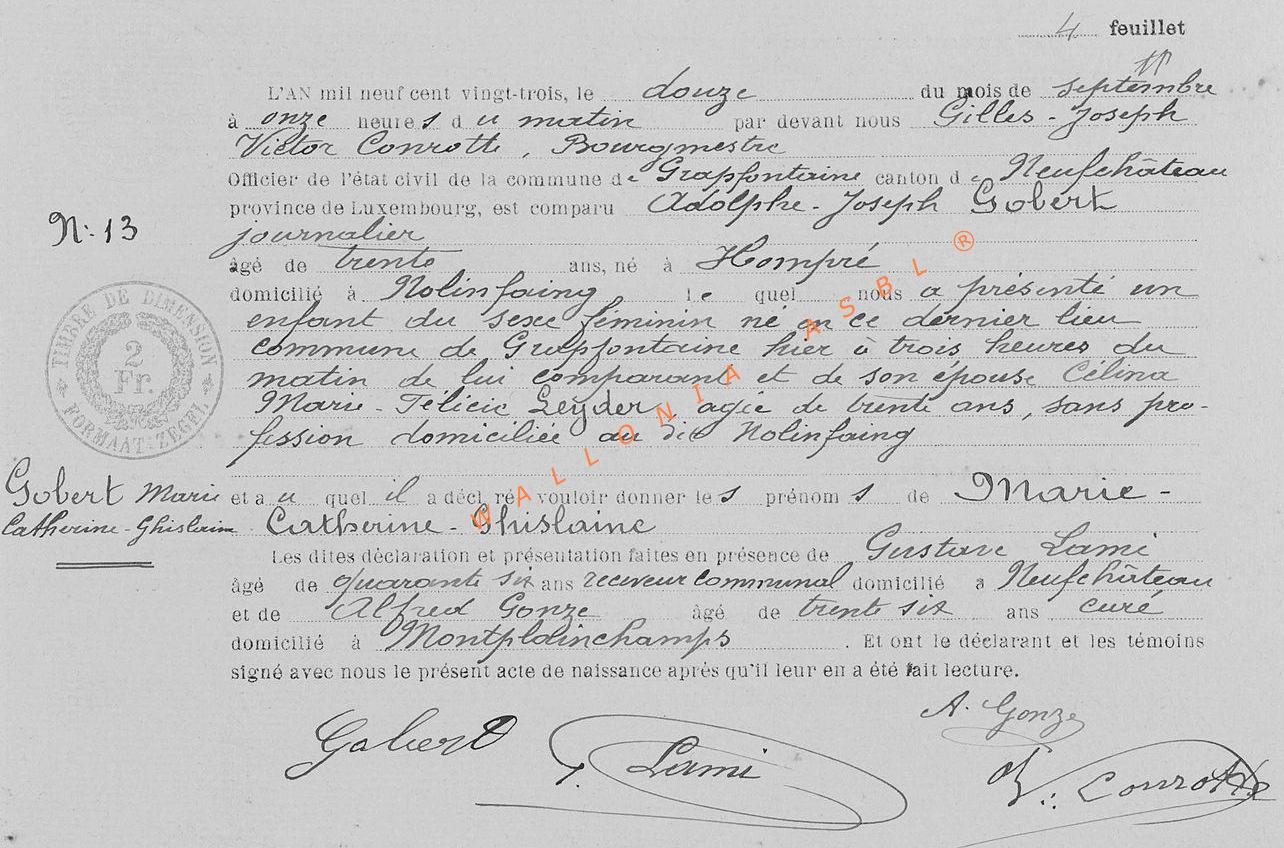 4 feuillet
L'AN mil neuf cent vingt-trois, le douze du mois de septembre
à onze heures du matin par devant nous Gilles-Joseph
Victor Conrotte, Bourgmestre
Officier de l'état civil de la commune de Grapfontaine canton de Neufchâteau
province de Luxembourg, est comparu Adolphe-Joseph Gobert
journalier
âgé de trente ans, né à Hompré
domicilié à Nolinfaing le quel nous a présenté un
enfant du sexe féminin né en ce dernier lieu
commune de Grapfontaine hier à trois heures du
matin de lui comparant et de son épouse Célina
Marie-Félicie Leyder, agée de trente ans, sans pro-
fession domiciliée au dit Nolinfaing
et au quel il a déclaré vouloir donner les prénoms de Marie-
Catherine-Ghislaine
Les dites déclaration et présentation faites en présence de Gustave Lami
âgé de quarante six ans receveur communal domicilié à Neufchâteau
et de Alfred Gonze âgé de trente six ans curé
domicilié à Montplainchamps. Et ont le déclarant et les témoins
signé avec nous le présent acte de naissance après qu'il leur en a été fait lecture.
N: 13
TIMBRE DE DIMENSION
2
Fr.
FORMAAT-ZEGEL
Gobert Marie
Catherine-Ghislain
WALLONIA ASBL ®
A. Gonze
Gobert
Lami
V. Conrotte